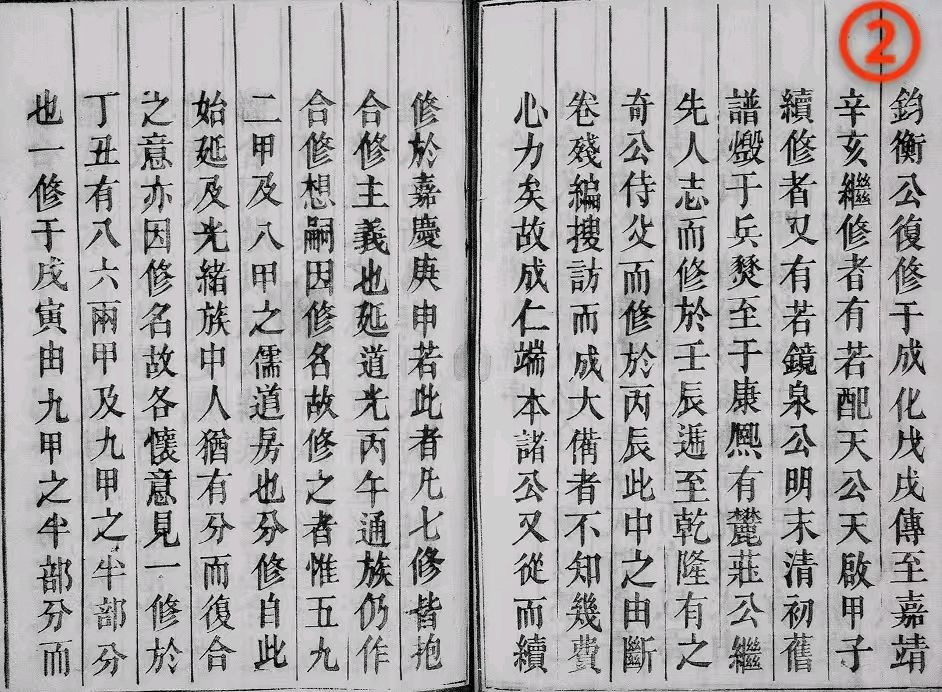 ②
鈞衡公復修于成化戊戌傳至嘉靖
辛亥繼修者有若配天公天啟甲子
續修者又有若鏡泉公明末清初舊
譜燬于兵燹至于康熙有麓莊公繼
先人志而修於壬辰遞至乾隆有之
奇公侍父而修於丙辰此中之由斷
卷殘編搜訪而成大備者不知幾費
心力矣故成仁端本諸公又從而續
修於嘉慶庚申若此者凡七修皆抱
合修主義也延道光丙午通族仍作
合修想嗣因修名故修之者惟五九
二甲及八甲之儒道房也分修自此
始延及光緒族中人猶有分而復合
之意亦因修名故各懷意見一修於
丁丑有八六兩甲及九甲之半部分
也一修于戊寅由九甲之半部分而